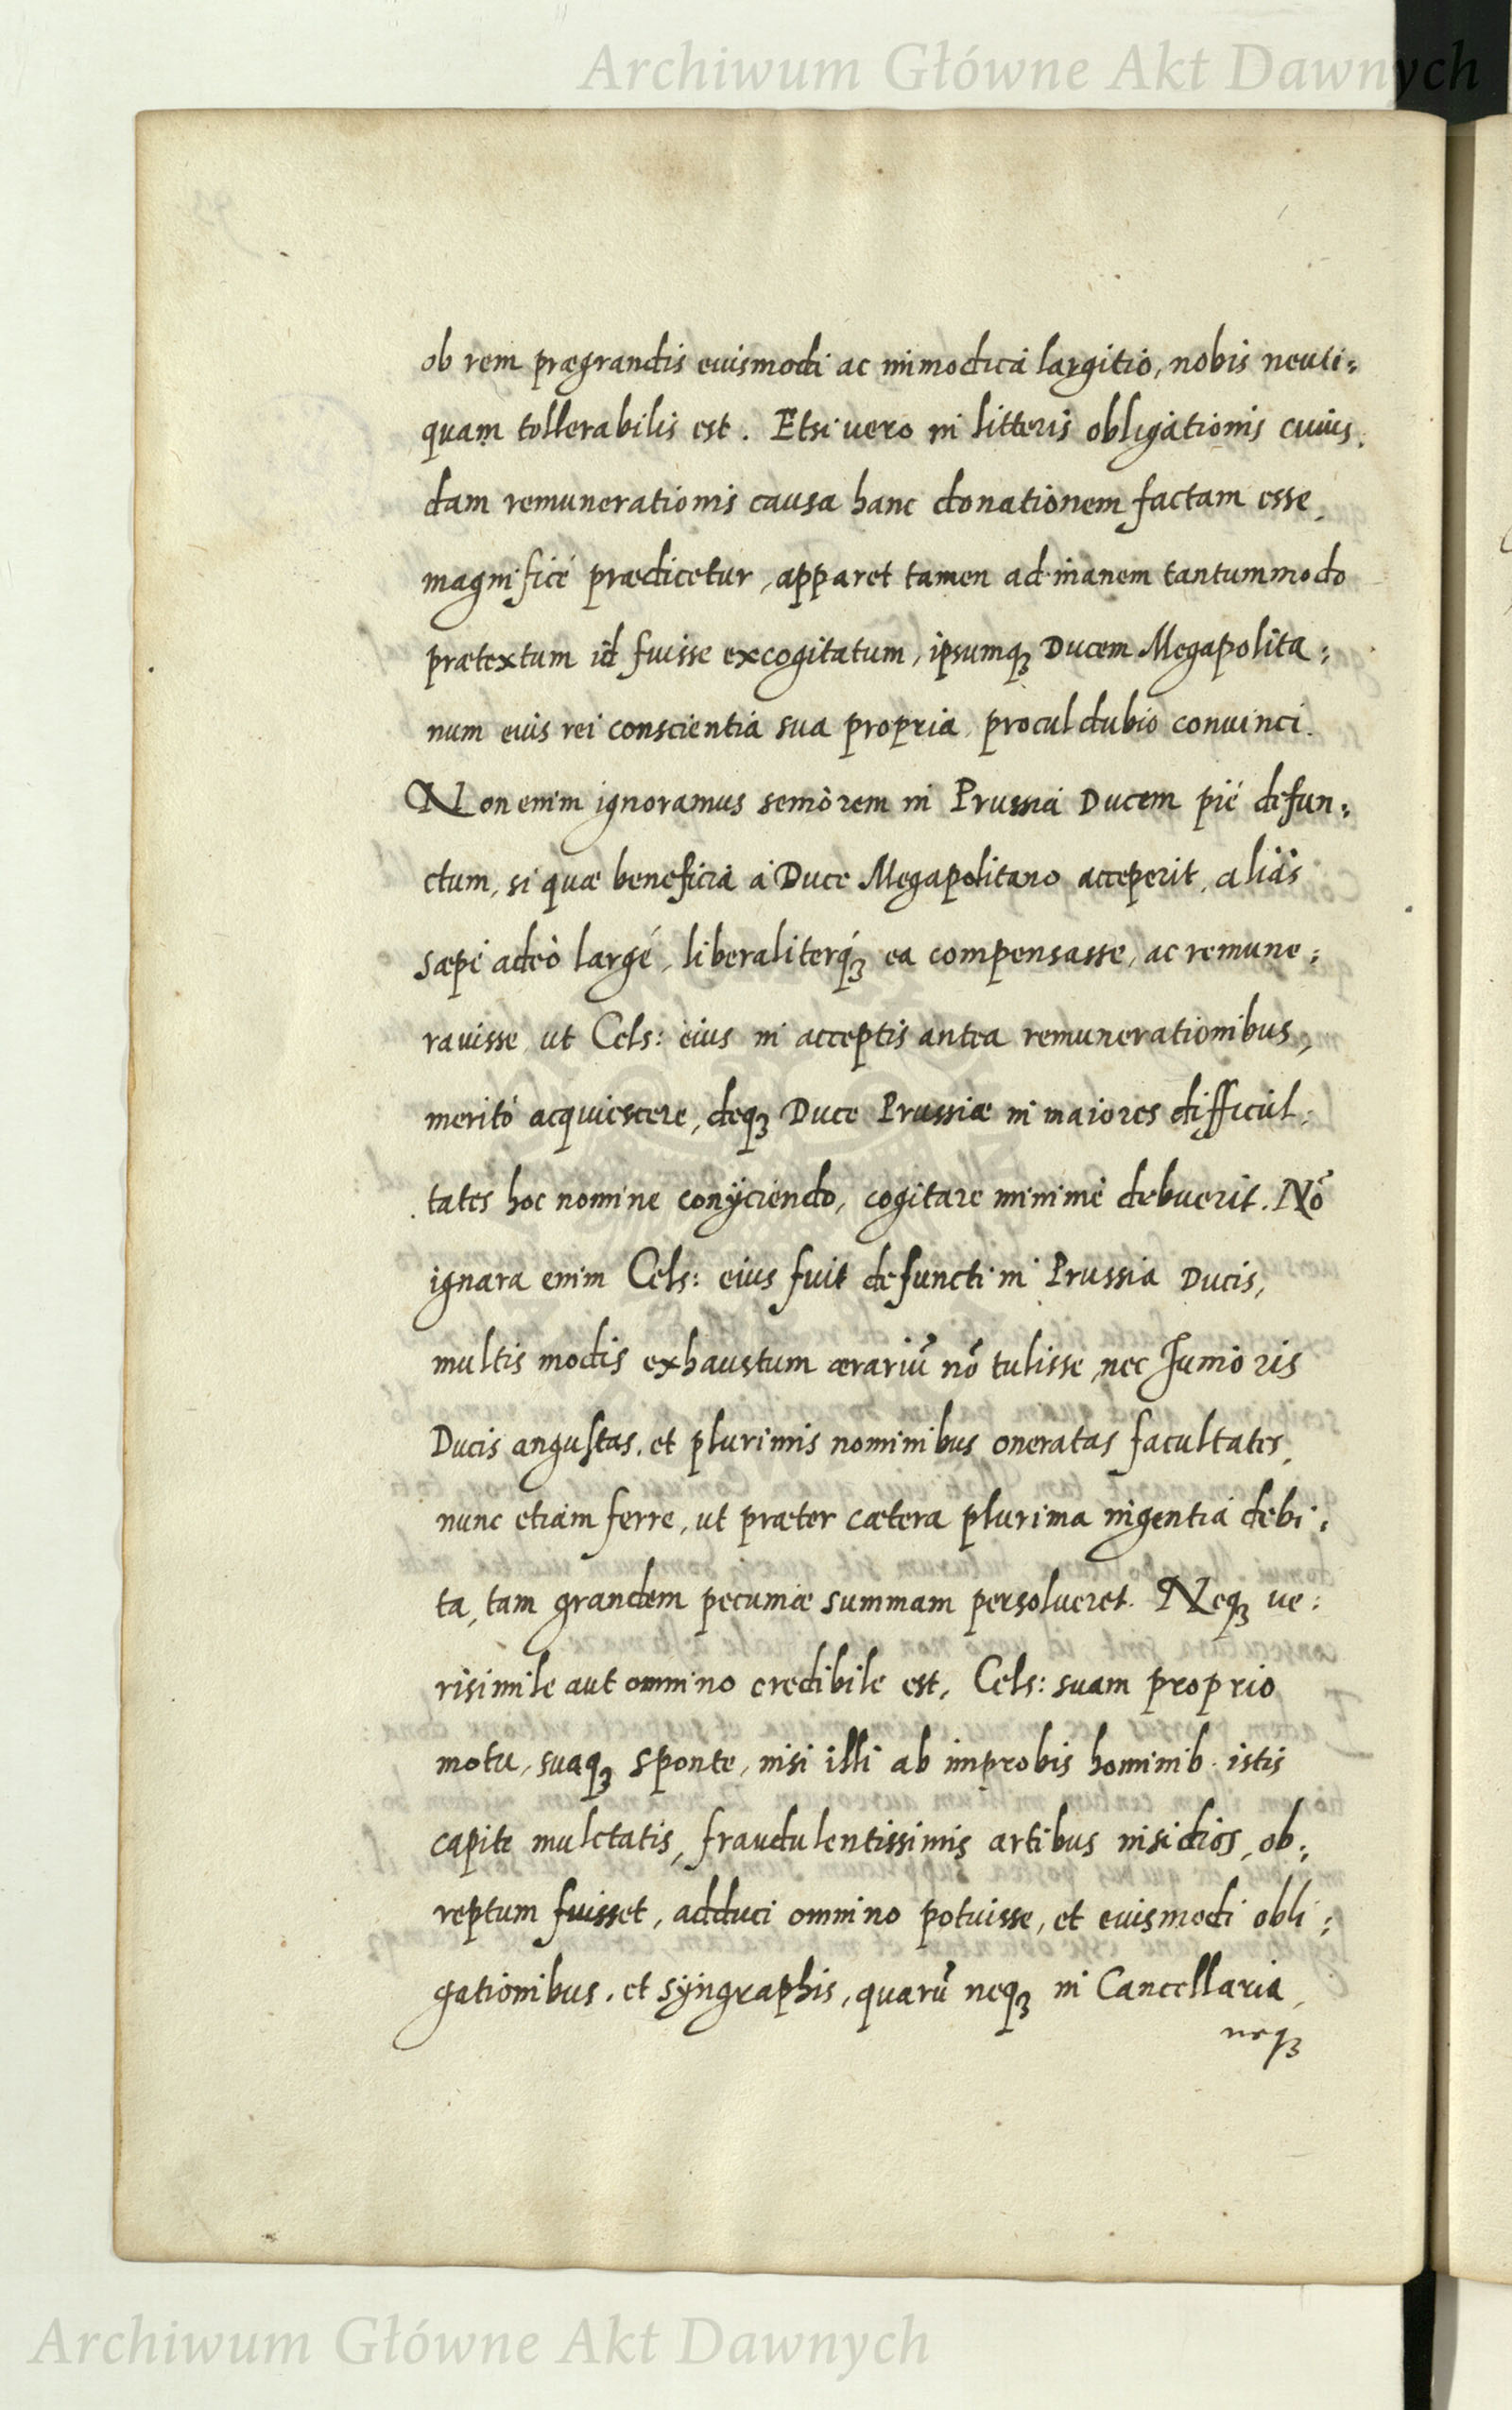 Archiwum Główne Akt Dawnych
ob rem prægrandis eiusmodi ac immodica largitio, nobis neuti:
quam tollerabilis est. Etsi vero in litteris obligationis cuius.
dam remunerationis causa hanc donationem factam esse
magnificè prædicetur, apparet tamen ad inanem tantummodo
prætextum id fuisse excogitatum, ipsumqꝫ Ducem Megapolita:
num eius rei conscientia sua propria procul dubio conuinci.
Non enim ignoramus seniorem in Prussia Ducem piè defun:
ctum, si quæ beneficia à Duce Megapolitano acceperit, alias
sæpè adeò largè, liberaliterq́ꝫ ea compensasse, ac remune:
rauisse ut Cels: eius in acceptis antea remunerationibus,
meritò acquiescere, deqꝫ Duce Prussiæ in maiores difficul:
tates hoc nomine conÿciendo, cogitare minimè debuerit. Nõ
ignara enim Cels: eius fuit defuncti in Prussia Ducis,
multis modis exhaustum ærariũ nõ tulisse, nec Junioris
Ducis angustas, et plurimis nominibus oneratas facultates,
nunc etiam ferre, ut præter cætera plurima ingentia debi:
ta, tam grandem pecuniæ summam persolueret. Neqꝫ ve:
risimile aut omnino credibile est, Cels: suam proprio
motu, suaqꝫ sponte, nisi illi ab improbis hominib. istis
capite mulctatis, fraudulentissimis artibus insidios, ob:
reptum fuisset, adduci omnino potuisse, et eiusmodi obli:
gationibus, et syngraphis, quarũ neqꝫ in Cancellaria,
neqꝫ
Archiwum Główne Akt Dawnych